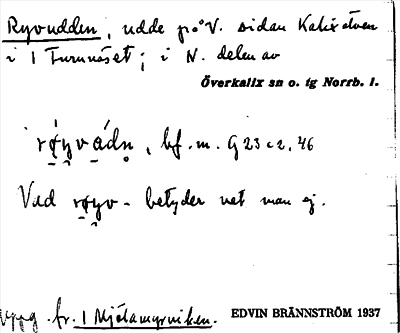 Ryvudden, udde på V. sidan Kalixälven
i 1 Turunäset; i N. delen av
Överkalix sn o. tg Norrb. l.
bf. m. G 23 c 2. 46
Vad betyder vet man ej.
Uppg. fr. 1 Mjölamyrviken.
EDVIN BRÄNNSTRÖM 1937